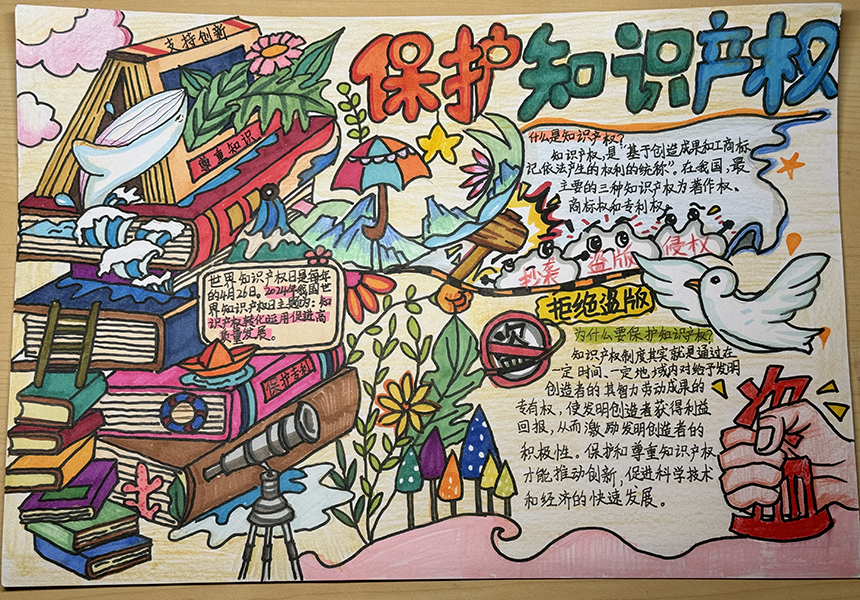 保护知识产权
支持创新
尊重知识
什么是知识产权?
知识产权,是“基于创造成果和工商标
记依法产生的权利的统称”。在我国,最
主要的三种知识产权为著作权、
商标权和专利权
抄袭
盗版
侵权
世界知识产权日是每年
的4月26日。2024年我国世
界知识产权日主题为:知
识产权转化运用促进高
质量发展。
拒绝盗版
保护专利
为什么要保护知识产权?
知识产权制度其实就是通过在
一定时间、一定地域内对给予发明
创造者的其智力劳动成果的
专有权,使发明创造者获得利益
回报,从而激励发明创造者的
积极性。保护和尊重知识产权
才能推动创新,促进科学技术
和经济的快速发展。